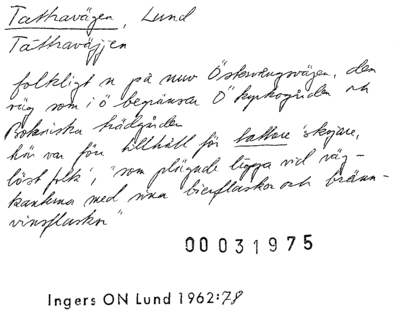 Tattravägen, Lund
Táttraväjjen
folkligt n på nuv Östervångsvägen, den
väg som i ö begränsar Ö kyrkogården och
Botaniska trädgården
här var förr tillhåll för tattare 'skojare,
löst folk', "som plägade ligga vid väg-
kanterna med sina bierflaskor och bränn-
vinsflaskor"
00031975
Ingers ON Lund 1962:78